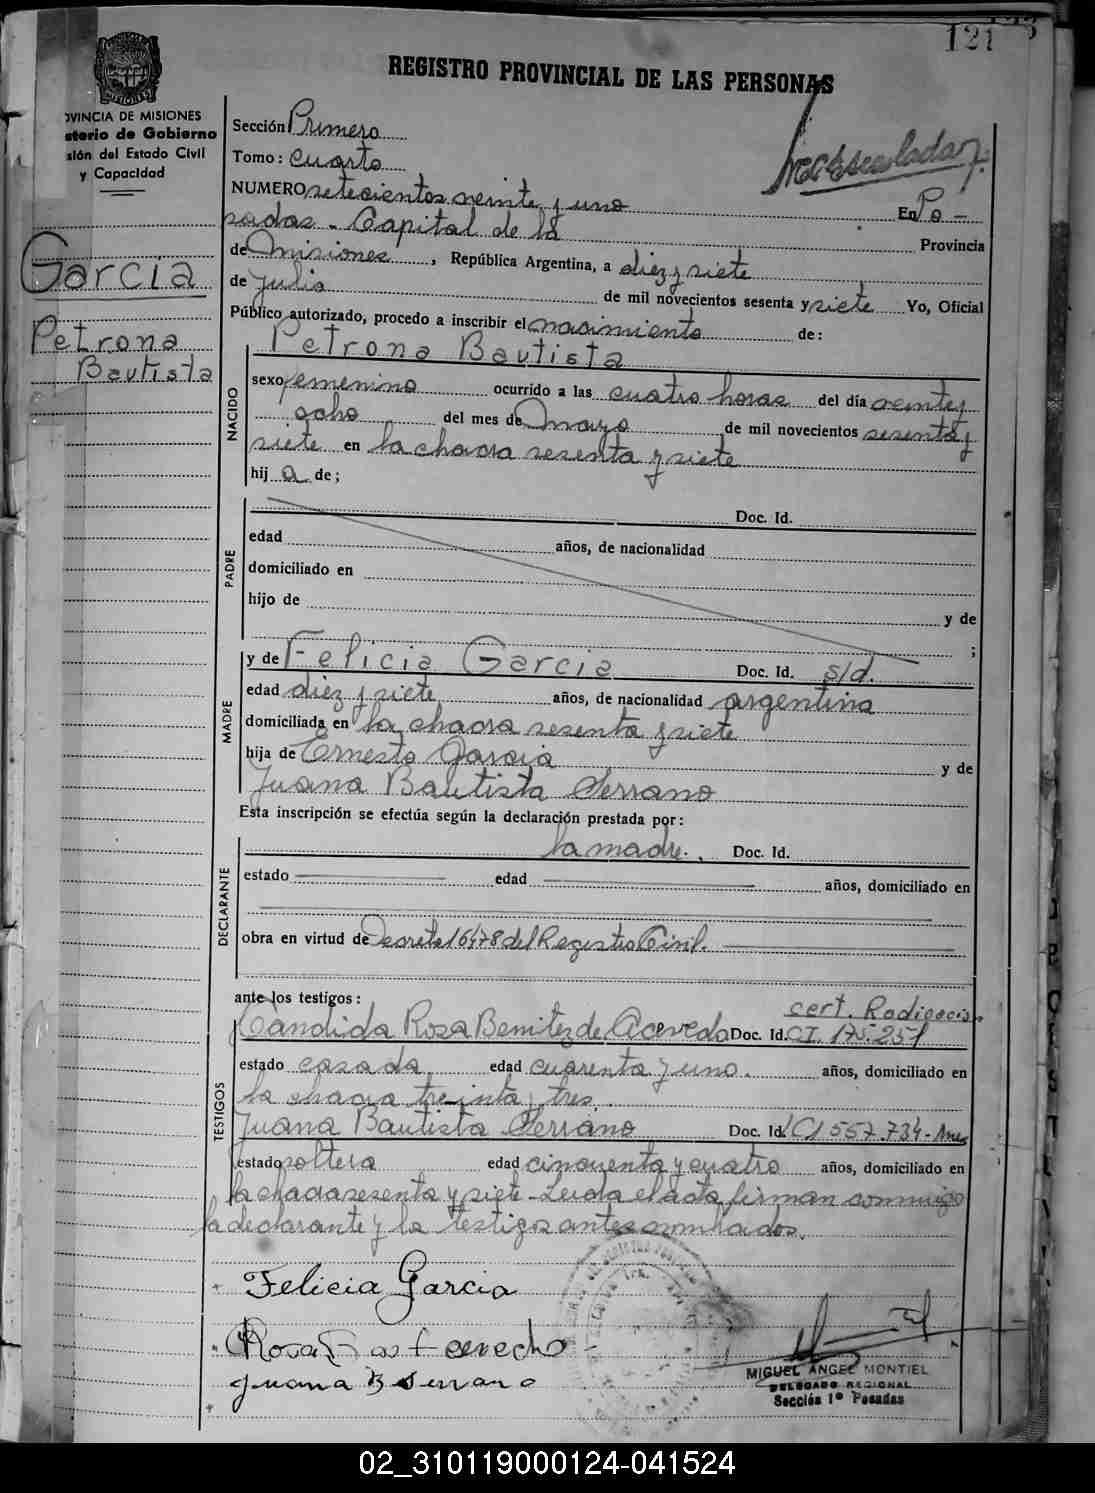 121
REGISTRO PROVINCIAL DE LAS PERSONAS
OVINCIA DE MISIONES
sterio de Gobierno
sión del Estado Civil
y Capacidad
Sección Primera
Tomo: Cuarto
NUMERO setecientos veinte y uno
En Po-
sadas - Capital de la Provincia
de Misiones, República Argentina, a diez y siete
de Julio de mil novecientos sesenta y siete Yo, Oficial
Público autorizado, procedo a inscribir el nacimiento de:
Garcia
Petrona
Bautista
NACIDO
Petrona Bautista
sexo femenino ocurrido a las cuatro horas del día veinte y
ocho del mes de Mayo de mil novecientos sesenta y
siete en la chacra sesenta y siete
hija de;
PADRE
Doc. Id.
edad años, de nacionalidad
domiciliado en
hijo de y de
;
MADRE
y de Felicia Garcia Doc. Id. s/d.
edad diez y siete años, de nacionalidad argentina
domiciliada en la chacra sesenta y siete
hija de Ernesto Garcia y de
Juana Bautista Serrano
Esta inscripción se efectúa según la declaración prestada por:
DECLARANTE
la madre. Doc. Id.
estado edad años, domiciliado en
obra en virtud de Decreto 16478 del Registro Civil.
ante los testigos:
TESTIGOS
cert. Radicación
Candida Rosa Benitez de Acevedo Doc. Id. CI. 175.251
estado casada edad cuarenta y uno. años, domiciliado en
la chacra treinta y tres.
Juana Bautista Serrano Doc. Id. CI 557.734-
estado soltera edad cincuenta y cuatro años, domiciliado en
la chacra sesenta y siete - Leida el acta firman conmigo
la declarante y la testigos antes nombrados.
Felicia Garcia
Rosa Acevedo
Juana B Serrano
MIGUEL ANGEL MONTIEL
DELEGADO REGIONAL
Sección 1º Posadas
02_310119000124-041524